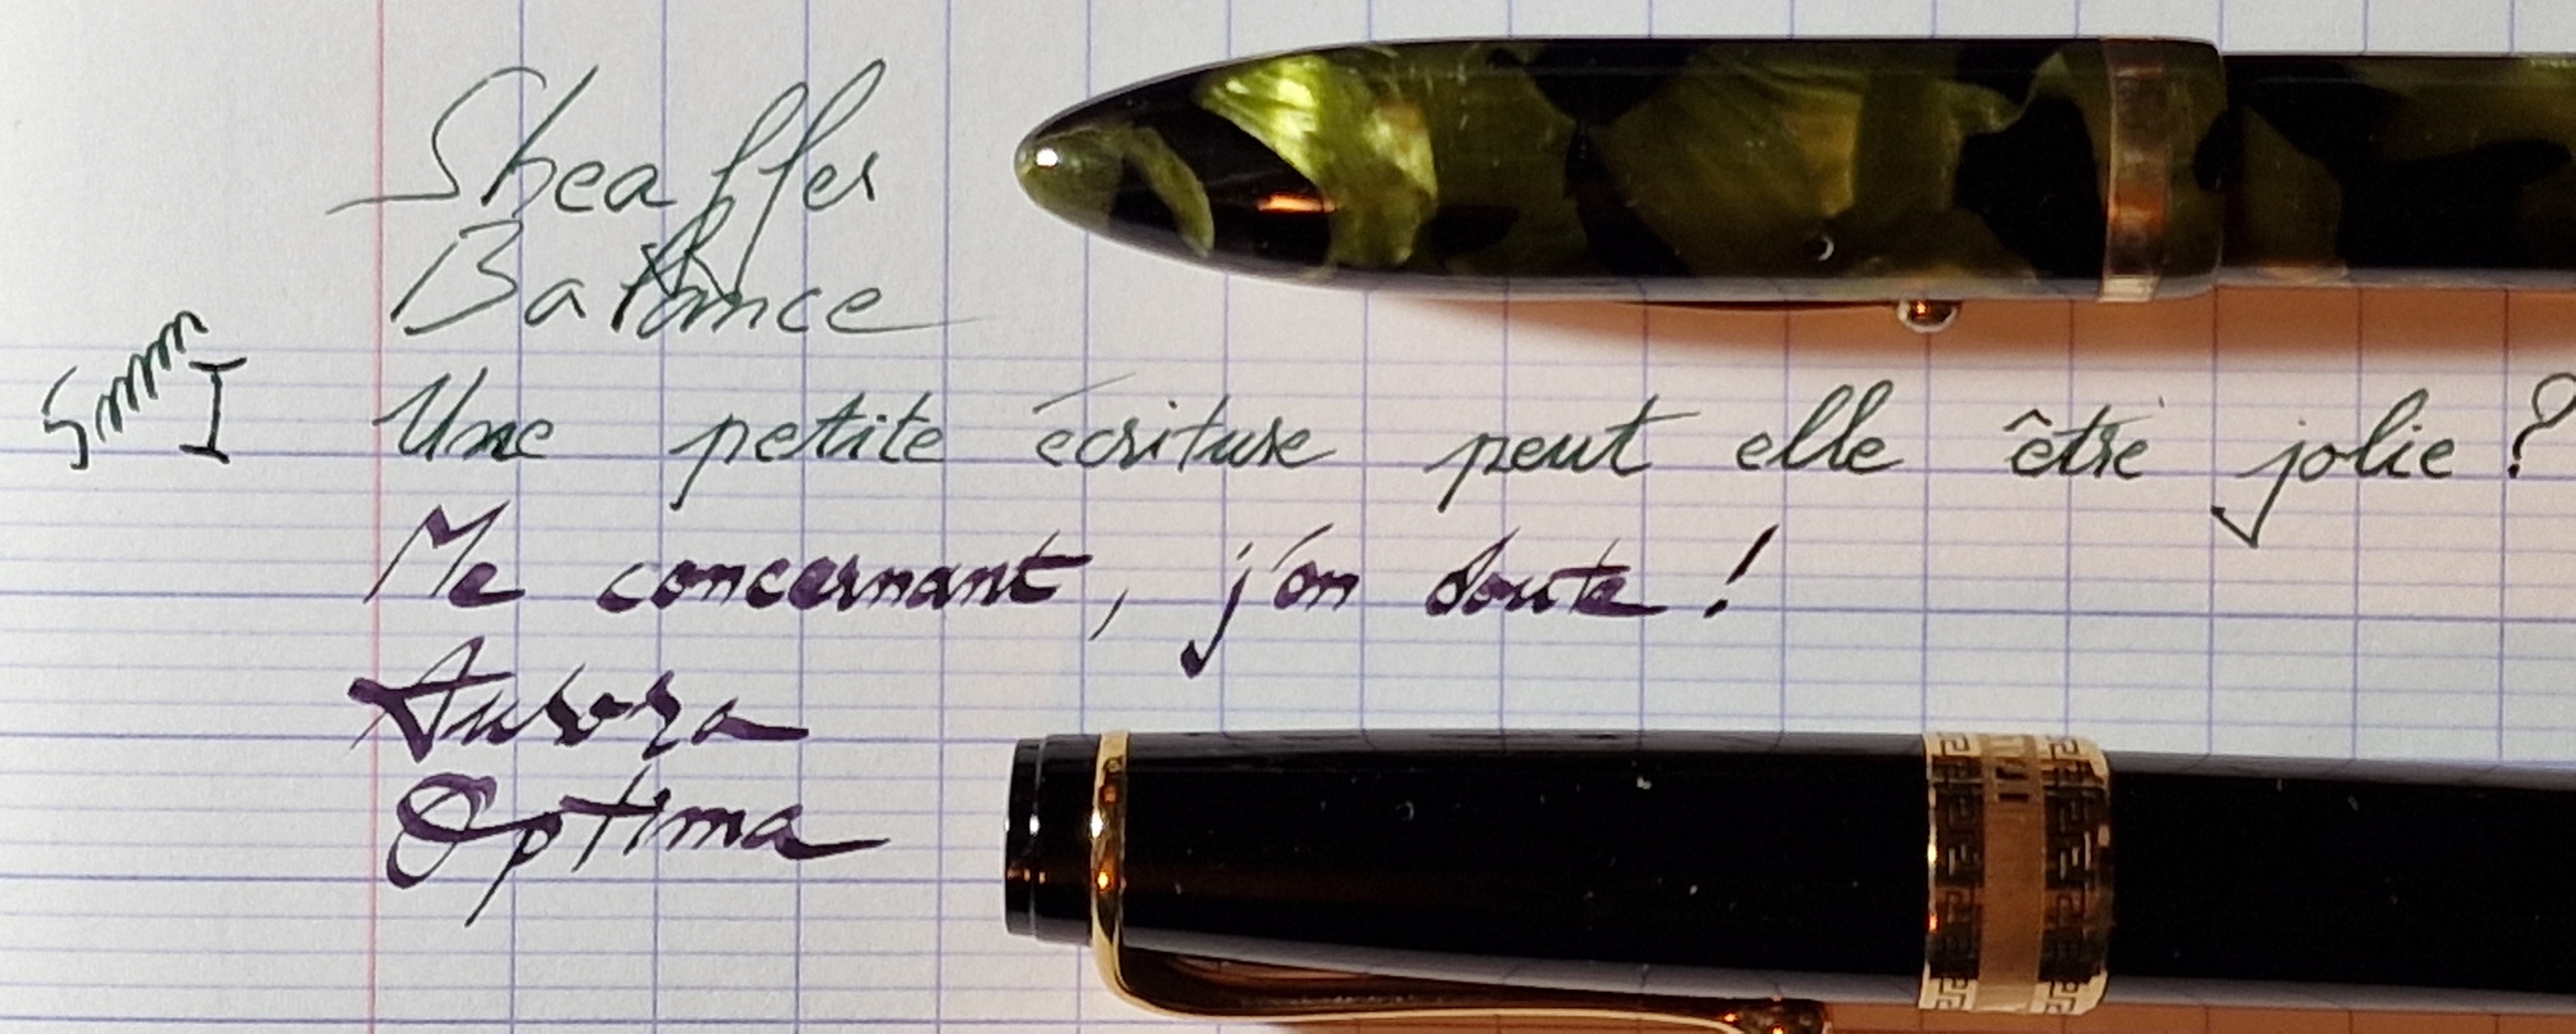 Sheaffer
Balance
5mm
Une petite écriture peut elle être jolie ?
Me concernant, j'en doute !
Aurora
Optima